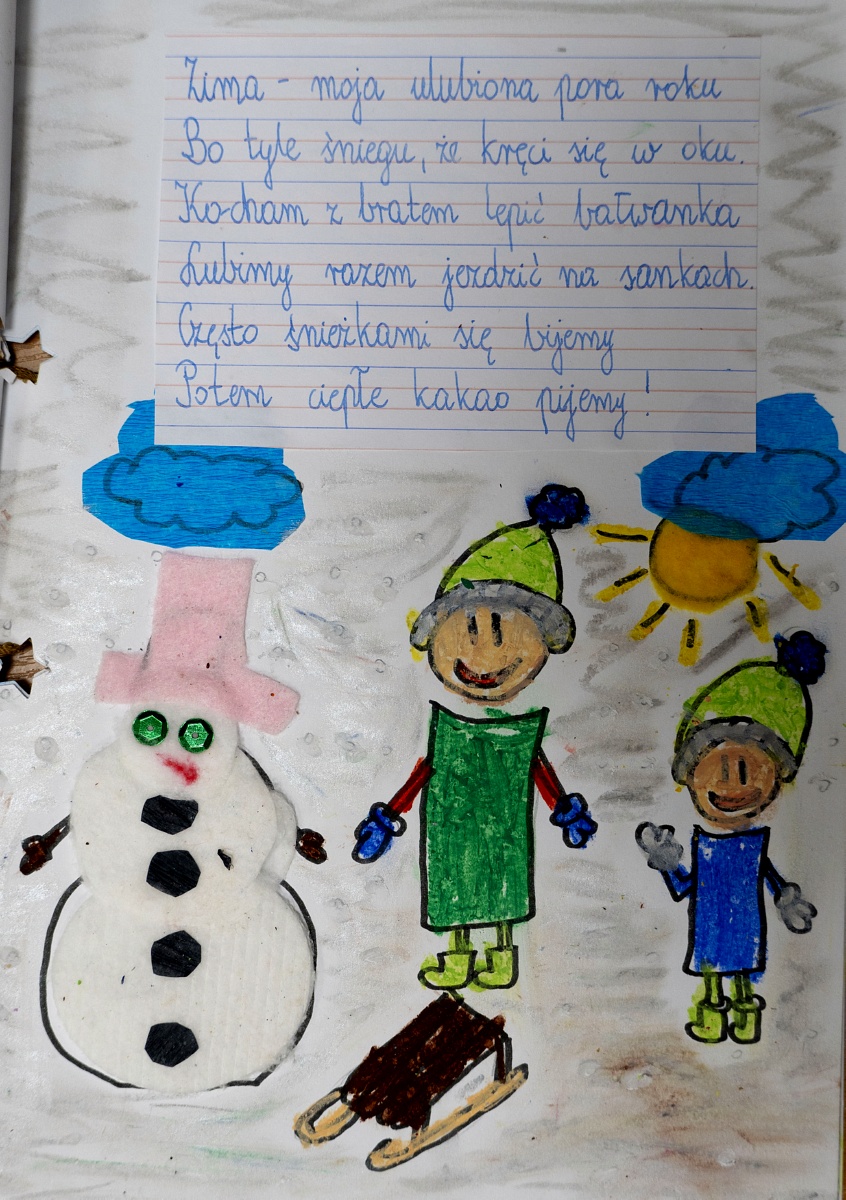 Zima - moja ulubiona pora roku
Bo tyle śniegu, że kręci się w oku.
Kocham z bratem lepić bałwanka
Lubimy razem jezdzić na sankach.
Często śnieżkami się bijemy
Potem ciepłe kakao pijemy!